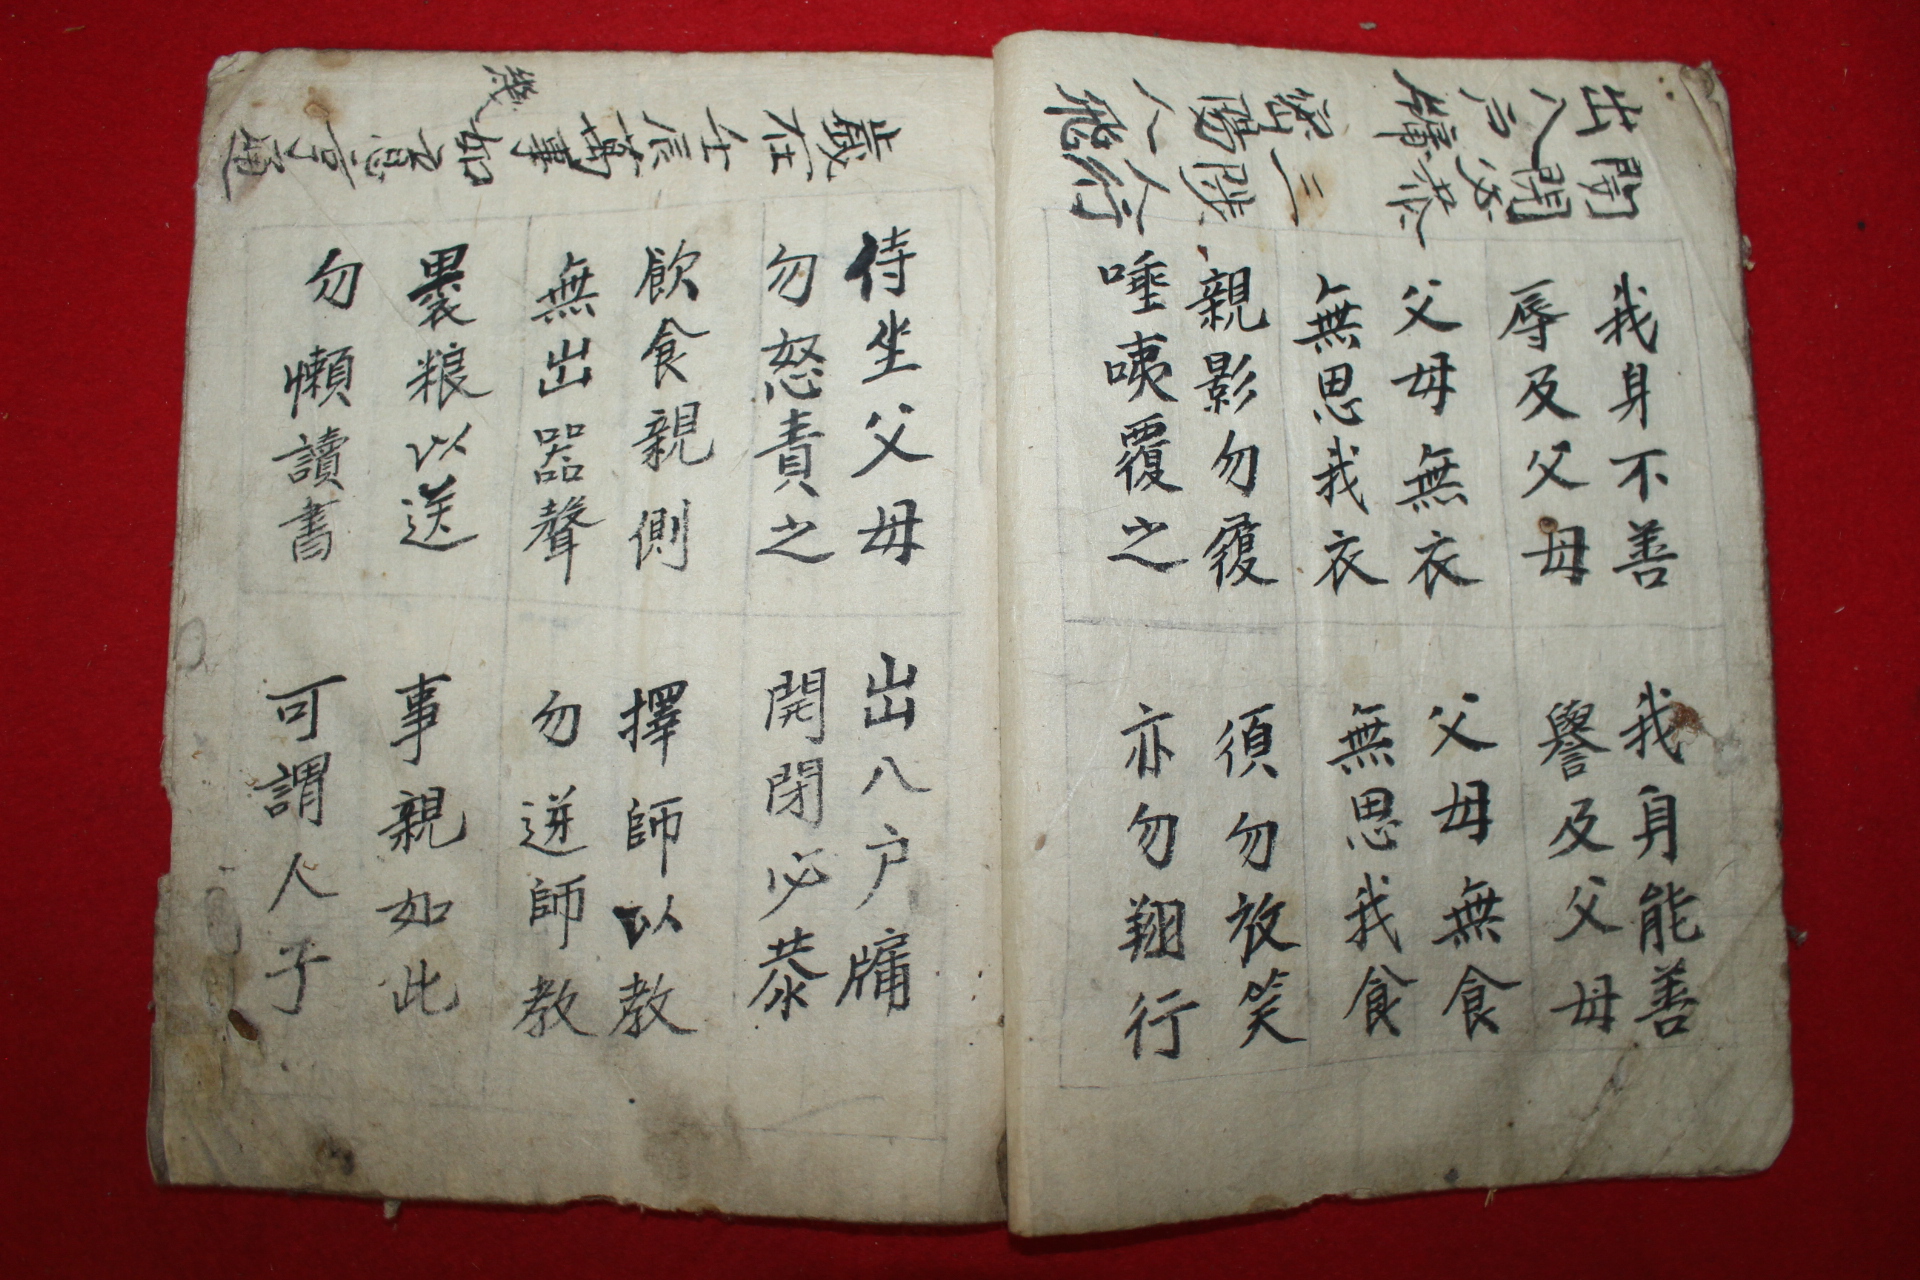 出入戶牖
開閉必恭
我身不善
辱及父母
父母無衣
無思我衣
親影勿履
唾咦覆之
我身能善
譽及父母
父母無食
無思我食
須勿放笑
亦勿翔行
歲在壬辰萬事如意亨通
侍坐父母
勿怒責之
飮食親側
無出器聲
褁粮以送
勿懶讀書
出八户牖
開閉必恭
擇師以教
勿逆師教
事親如此
可謂人子